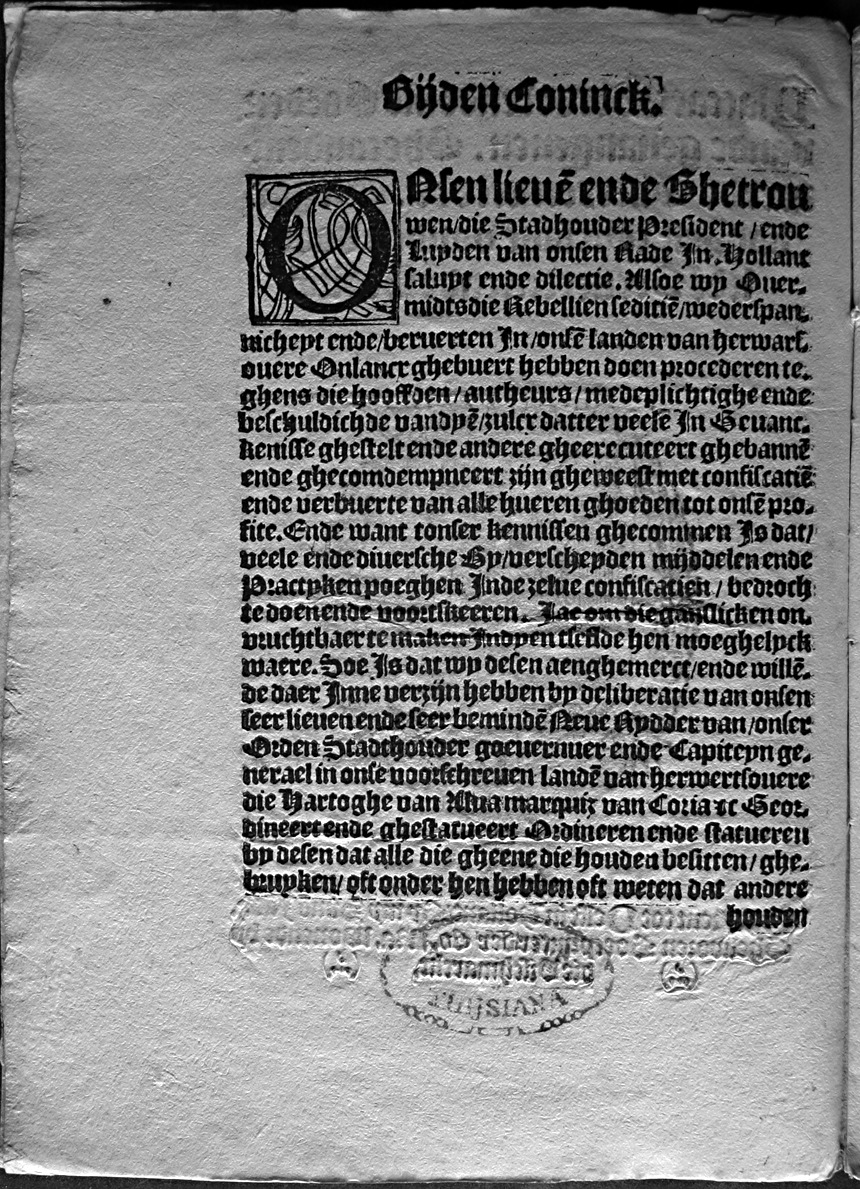 Bijden Coninck.
ONsen lieuē ende Ghetrou
wen/die Stadhouder President / ende
Luyden van onsen Rade In. Hollant
saluyt ende dilectie. Alsoe wy Ouer-
midtsdie Rebellien seditiē/wederspan-
nicheyt ende/beruerten In/onsē landen van herwars
ouere Onlancx ghebuert hebben doen procederen te-
ghens die hooffden/autheurs/medeplichtighe ende
beschuldichde vandyē/zulcx datter veele In Geuanc-
kenisse ghestelt ende andere gheexecuteert ghebannē
ende ghecomdempneert zijn gheweest met confiscatiē
ende verbuerte van alle hueren ghoeden tot onsē pro-
fite. Ende want tonser kennissen ghecommen Is dat/
veele ende diuersche By/verscheyden mijddelen ende
Practyken poeghen Inde zelue confiscatien / bedroch
te doen ende voortskeeren. Jae om die gansslicken on-
vruchtbaer te maken Indyen tselfde hen moeghelyck
waere. Soe Is dat wy desen aenghemerct/ende willē-
de daer Inne verzijn hebben by deliberatie van onsen
seer lieuen ende seer bemindē Neue Rydder van/onser
Orden Stadthouder goeuernuer ende Capiteyn ge-
nerael in onse voorschreuen landē van herwertsouere
die Hartoghe van Alua marquiz van Coria ꝛc Geor-
dineert ende ghestatueert Ordineren ende statueren
by desen dat alle die gheene die houden besitten/ghe-
bruyken/oft onder hen hebben oft weten dat andere
houden